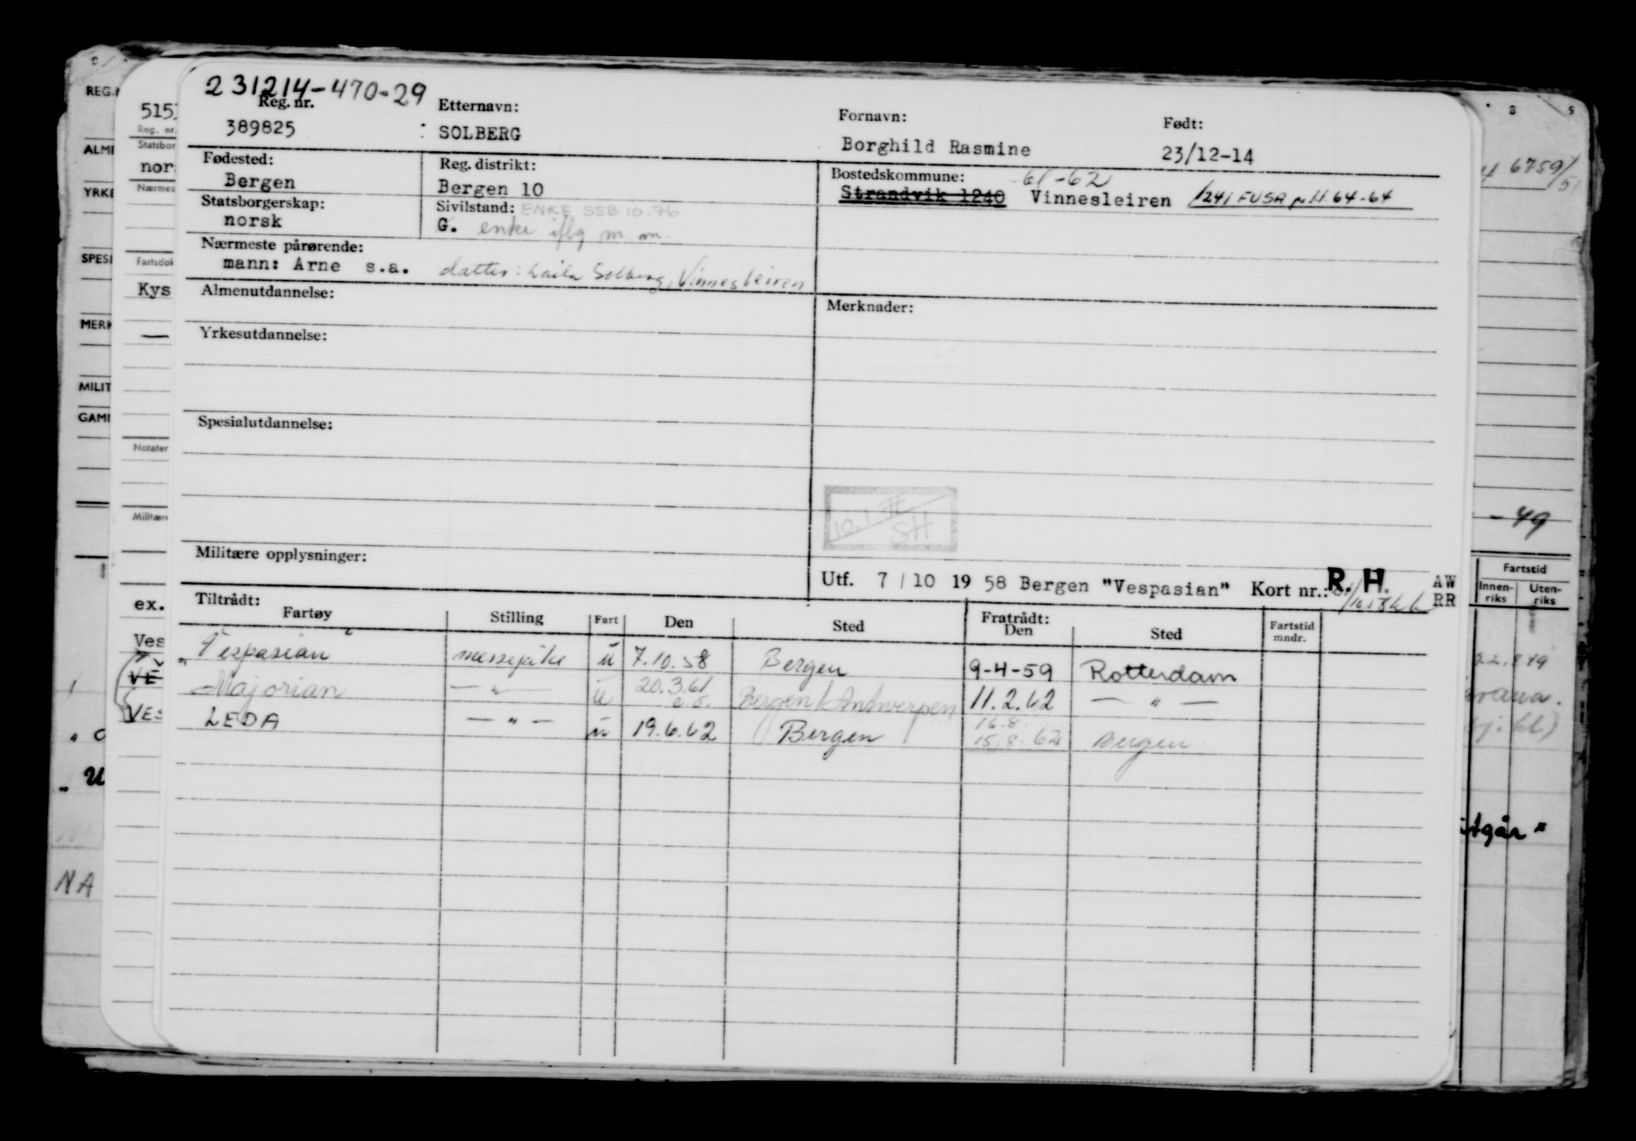 231214-470-29
Reg. nr. Etternavn: Fornavn: Født:
389825 : SOLBERG Borghild Rasmine 23/12-14
Fødested: Reg. distrikt: Bostedskommune: -61-62
Bergen Bergen 10 Strandvik 1240 Vinnesleiren 1241 FUSA 11.64-64
Statsborgerskap: Sivilstand: ENKE SSB 10.76
norsk G. enke iflg m.m.
Nærmeste pårørende:
mann: Arne s.a. datter: Laila Solberg, Vinnesleiren
Almenutdannelse: Merknader:
Yrkesutdannelse:
Spesialutdannelse:
10.1.
SH
Militære opplysninger:
Utf. 7/10 19 58 Bergen "Vespasian" Kort nr.: R.H. AW
RR
Tiltrådt: Fratrådt:
Fartøy Stilling Fart Den Sted Den Sted Fartstid mndr.
Vespasian messepike u 7.10.58 Bergen 9-4-59 Rotterdam
Majorian — " — u 20.3.61 Bergen Antwerpen 11.2.62 — " —
LEDA — " — u 19.6.62 Bergen 16.8.
15.8.62 Bergen
REG.
ALME
YRKE
SPESI
MERK
MILIT
GAMI
NA
515
Reg. nr.
Statsbor
nor
Nærmes
Fartsdok
Kys
—
Notater
Militæn
ex.
Ves
VE
VES
8 5
6759/51
-49
Fartstid
Innenriks Utenriks
tgår"